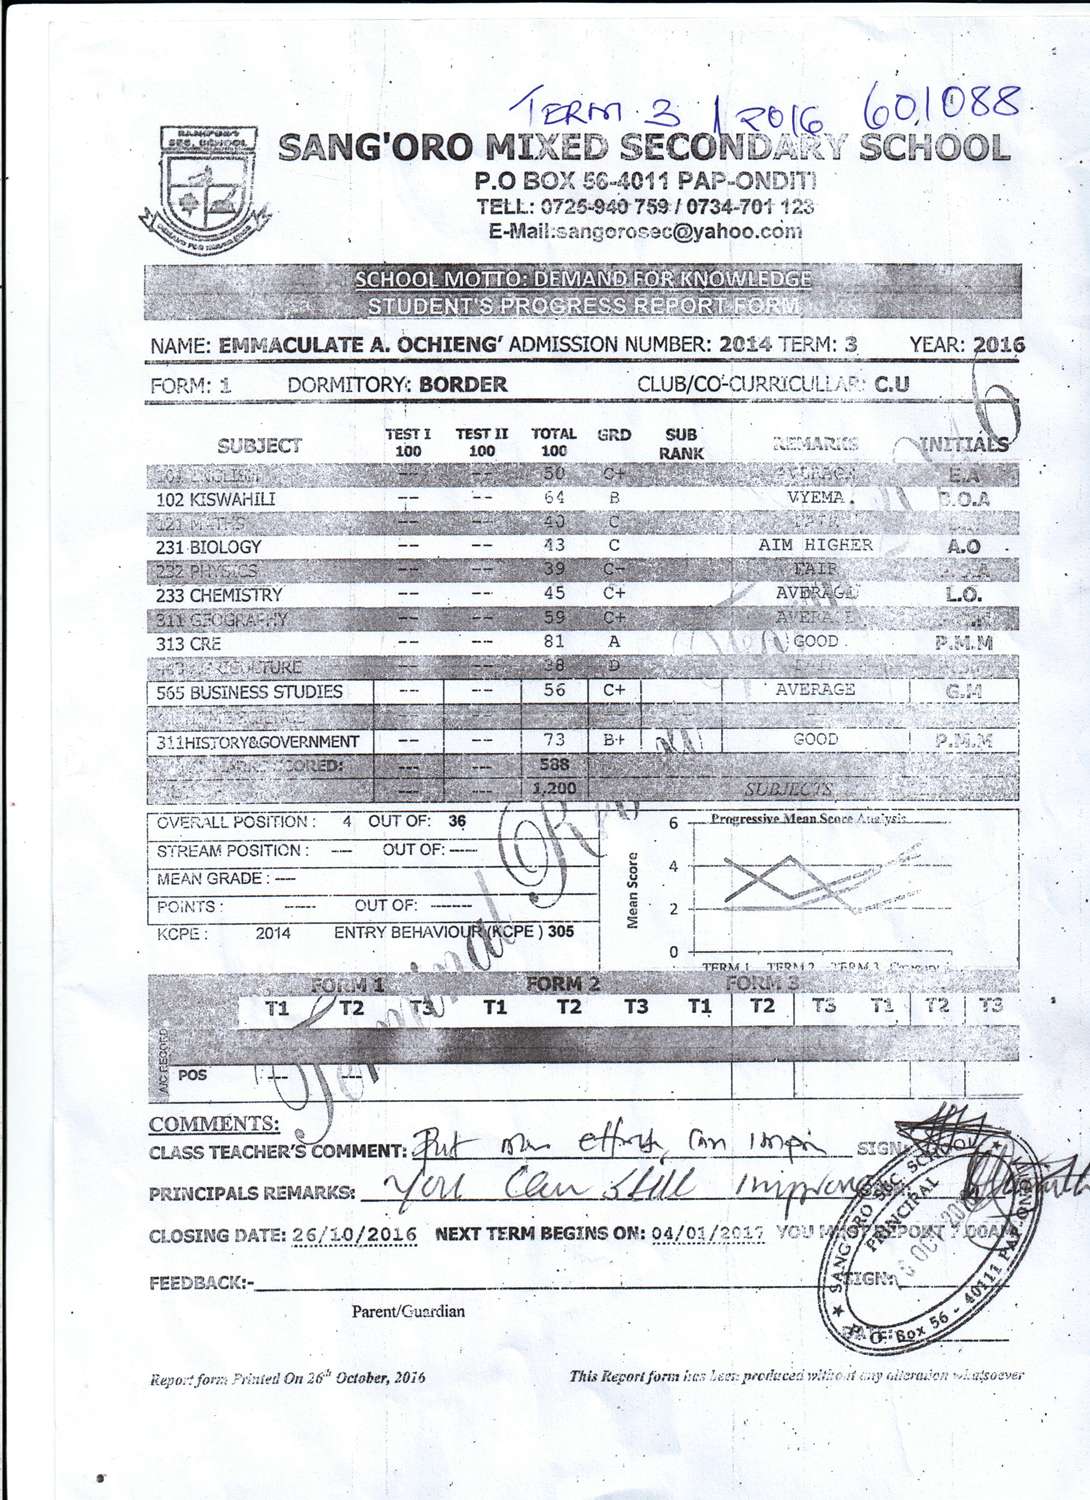 TERM 3 / 2016 601088
SANG'ORO SEC. SCHOOL
SANG'ORO MIXED SECONDARY SCHOOL
P.O BOX 56-4011 PAP-ONDITI
TELL: 0725-940 759 / 0734-701 123
E-Mail:sangorosec@yahoo.com
SCHOOL MOTTO: DEMAND FOR KNOWLEDGE
STUDENT'S PROGRESS REPORT FORM
NAME: EMMACULATE A. OCHIENG' ADMISSION NUMBER: 2014 TERM: 3 YEAR: 2016
FORM: 1 DORMITORY: BORDER CLUB/CO-CURRICULLAR: C.U
SUBJECT TEST I 100 TEST II 100 TOTAL 100 GRD SUB RANK REMARKS INITIALS
101 ENGLISH --- --- 50 C+ AVERAGE E.A
102 KISWAHILI --- --- 64 B VYEMA. B.O.A
121 MATHS --- --- 40 C FAIR
231 BIOLOGY --- --- 43 C AIM HIGHER A.O
232 PHYSICS --- --- 39 C- FAIR
233 CHEMISTRY --- --- 45 C+ AVERAGE L.O.
311 GEOGRAPHY --- --- 59 C+ AVERAGE
313 CRE --- --- 81 A GOOD. P.M.M
AGRICULTURE --- --- 38 D
565 BUSINESS STUDIES --- --- 56 C+ AVERAGE G.M
HOME SCIENCE --- --- --- ---
311HISTORY&GOVERNMENT --- --- 73 B+ GOOD P.M.M
SCORED: --- --- 588
--- --- 1,200 SUBJECTS
OVERALL POSITION : 4 OUT OF: 36
STREAM POSITION : --- OUT OF: ----
MEAN GRADE : ----
POINTS : ----- OUT OF: ------
KCPE : 2014 ENTRY BEHAVIOUR (KCPE ) 305
Progressive Mean Score Analysis
Mean Score
6
4
2
0
TERM 1 TERM 2 TERM 3
Terminal Report
FORM 1 FORM 2 FORM 3
T1 T2 T3 T1 T2 T3 T1 T2 T3 T1 T2 T3
POS --- ---
COMMENTS:
CLASS TEACHER'S COMMENT: Put efforts, can SIGN:
PRINCIPALS REMARKS: You can still improve
CLOSING DATE: 26/10/2016 NEXT TERM BEGINS ON: 04/01/2017 YOU MUST REPORT 7.00AM
FEEDBACK:- SIGN:
Parent/Guardian
DATE:
SANG'ORO SEC. SCHOOL
PRINCIPAL
P. O. Box 56 - 40111 PAP-ONDITI
Report form Printed On 26th October, 2016 This Report form has been produced without any alteration whatsoever